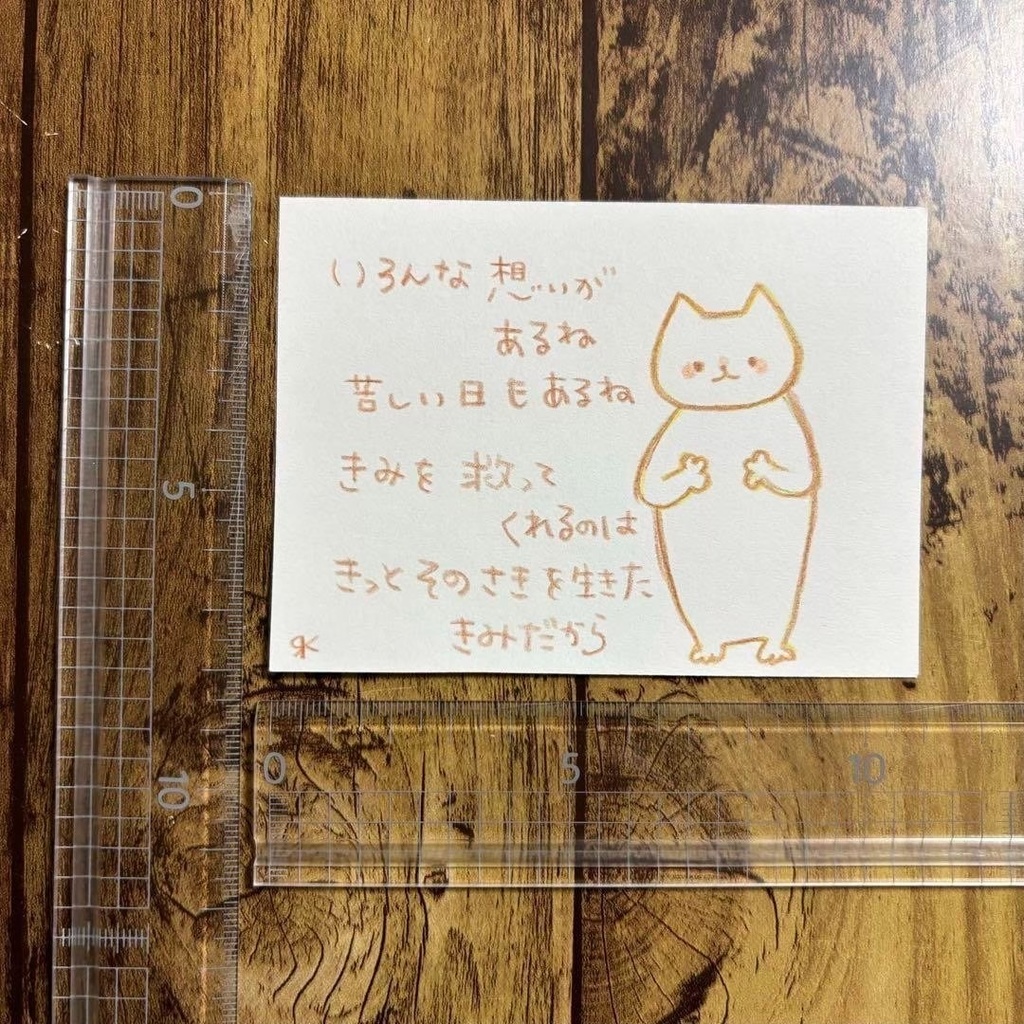 いろんな想いが
あるね
苦しい日もあるね
きみを救って
くれるのは
きっとそのさきを生きた
きみだから
0
5
10
0
5
10